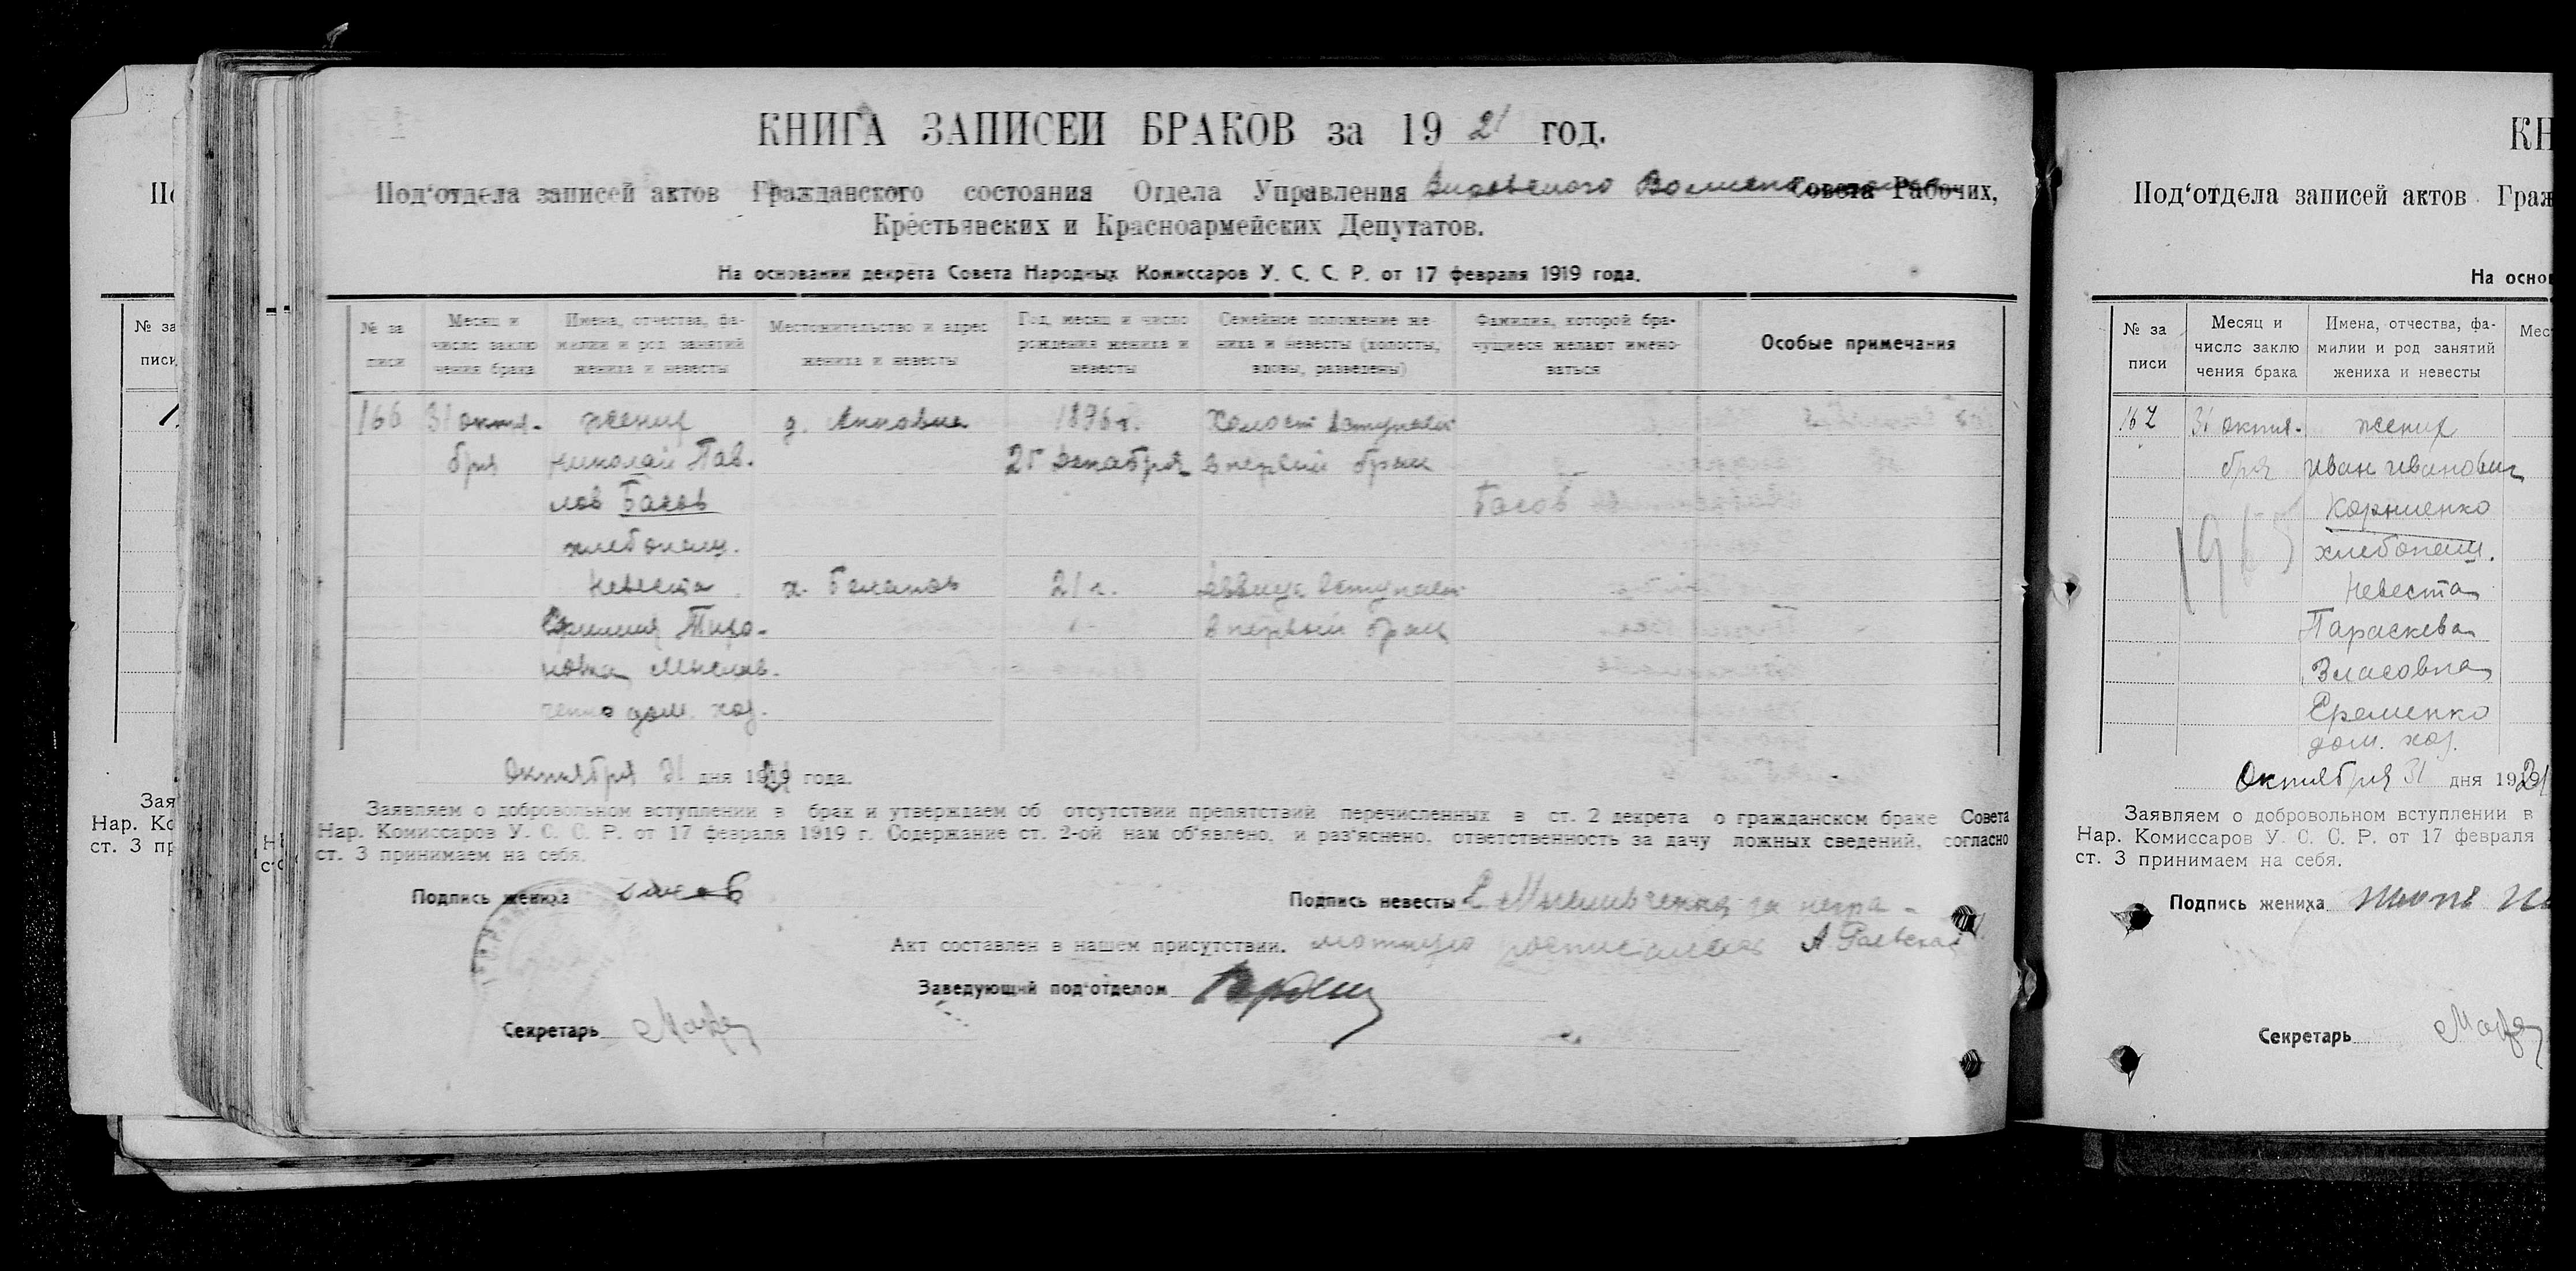 КНИГА ЗАПИСЕЙ БРАКОВ за 1921 год.
Под‘отдела записей актов Гражданского состояния Отдела Управления Совета Рабочих,
Крестьянских и Красноармейских Депутатов.
На основании декрета Совета Народных Комиссаров У. С. С. Р. от 17 февраля 1919 года.
№ за писи
Месяц и число заклю чения брака
Имена, отчества, фа- милии и род занятий жениха и невесты
Местожительство и адрес жениха и невесты
Год, месяц и число рождения жениха и невесты
Семейное положение же- ниха и невесты (холосты, вдовы, разведены)
Фамилия, которой бра- чущиеся желают имено- ваться
Особые примечания
166 31 октя- жених д. Анновка 1896 г. Холост вступает
бря Николай Пав. 25 декабря в первый брак
лов Басов Басов
хлебопаш.
Невеста х. 21 г. девица вступает
Тихо- в первый брак
новна Мыслив-
ченко дом. хоз.
Октября 31 дня 1921 года.
Заявляем о добровольном вступлении в брак и утверждаем об отсутствии препятствий перечисленных в ст. 2 декрета о гражданском браке Совета
Нар. Комиссаров У. С. С. Р. от 17 февраля 1919 г. Содержание ст. 2-ой нам об‘явлено, и раз‘яснено, ответственность за дачу ложных сведений, согласно
ст. 3 принимаем на себя.
Подпись жениха
Подпись невесты Е. Мысливченко за негра-
Акт составлен в нашем присутствии. мотную росписалась А. Раевская
Заведующий под‘отделом
Секретарь
КН
Под‘отдела записей актов Граж
На основ
№ за писи
Месяц и число заклю чения брака
Имена, отчества, фа- милии и род занятий жениха и невесты
Мес
167 31 октя- жених
бря Иван Иванович
Корниенко
хлебопаш.
Невеста
Параскева
Власовна
Еременко
дом. хоз.
Октября 31 дня 1921
Заявляем о добровольном вступлении в
Нар. Комиссаров У. С. С. Р. от 17 февраля
ст. 3 принимаем на себя.
Подпись жениха
Секретарь
По
№ за
писи
Зая
Нар. Ко
ст. 3 пр